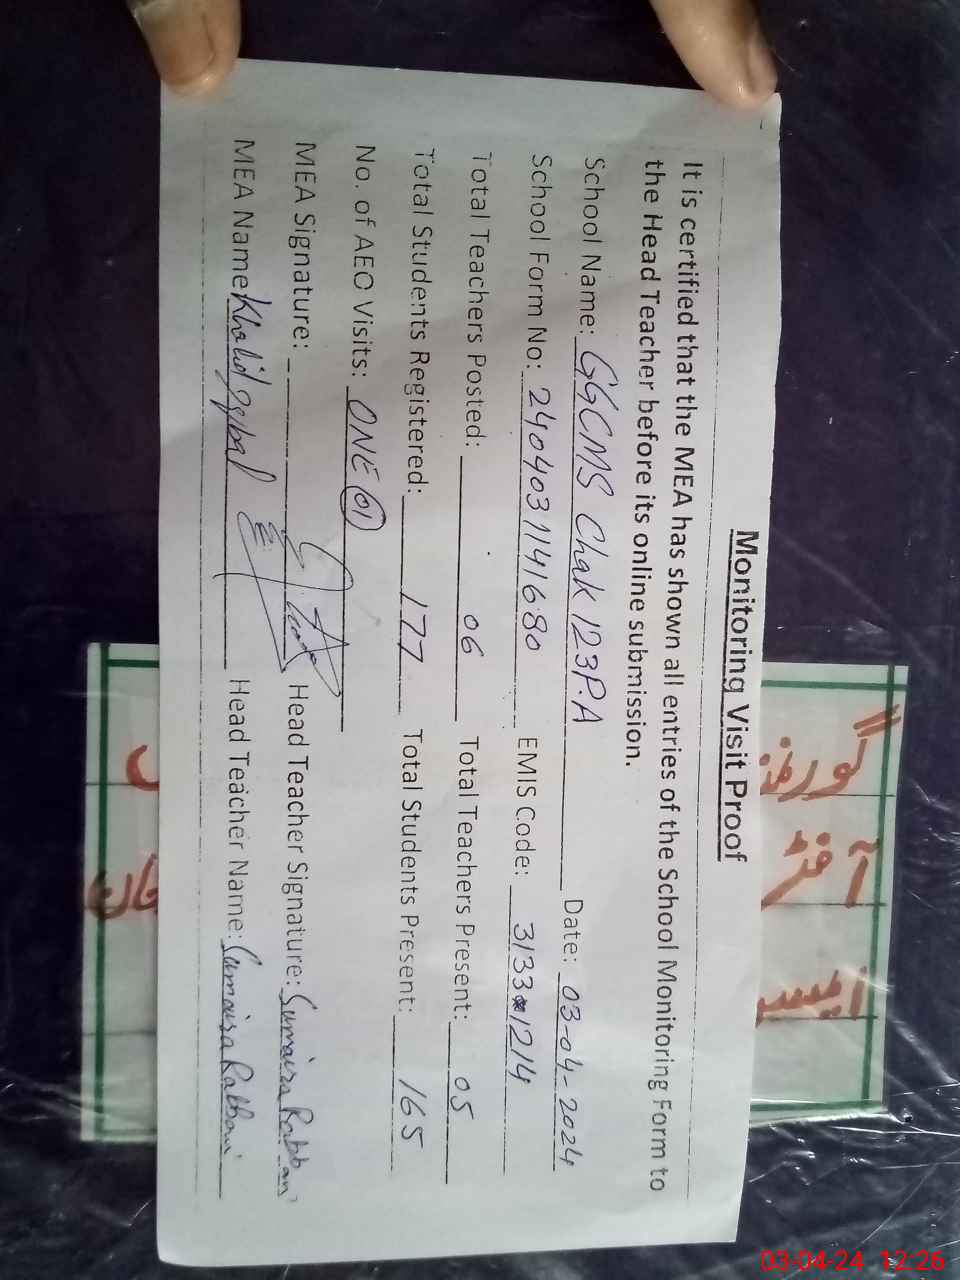 Monitoring Visit Proof
It is certified that the MEA has shown all entries of the School Monitoring Form to
the Head Teacher before its online submission.
School Name: GGCMS Chak 123P.A Date: 03-04-2024
School Form No: 2404031141680 EMIS Code: 31331214
Total Teachers Posted: 06 Total Teachers Present: 05
Total Students Registered: 177 Total Students Present: 165
No. of AEO Visits: ONE 01
MEA Signature: Head Teacher Signature: Sumaira Rabbani
MEA Name Khalid Iqbal Head Teacher Name: Sumaira Rabbani
آفر
03-04-24 12:26